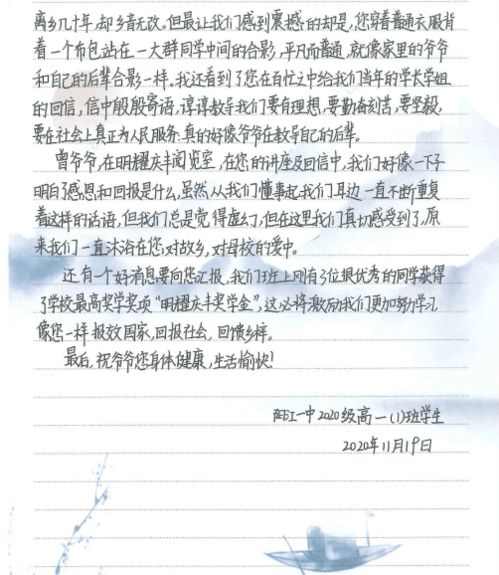 离乡几十年,却乡音无改。但最让我们感到震撼的却是,您穿着普通衣服背
着一个布包站在一大群同学中间的合影,平凡而普通,就像家里的爷爷
和自己的后辈合影一样。我还看到了您在百忙之中给我们当年的学长学姐
的回信,信中殷殷寄语,谆谆教导我们要有理想,要勤奋刻苦,要坚毅,
要在社会上真正为人民服务.真的好像爷爷在教导自己的后辈。
曾爷爷,在明耀庆丰阅览室,在您的讲座及回信中,我们好像一下子
明白了感恩和回报是什么,虽然从我们懂事起我们耳边一直不断重复
着这样的话语,但我们总是觉得虚幻,但在这里我们真切感受到了,原
来我们一直沐浴在您,对故乡,对母校的爱中。
还有一个好消息要向您汇报,我们班上刚有3位很优秀的同学获得
了学校最高奖学奖项“明耀庆丰奖学金”,这必将激励我们更加努力学习,
像您一样报效国家,回报社会,回馈乡梓。
最后,祝爷爷您身体健康,生活愉快!
阳江一中2020级高一(1)班学生
2020年11月19日